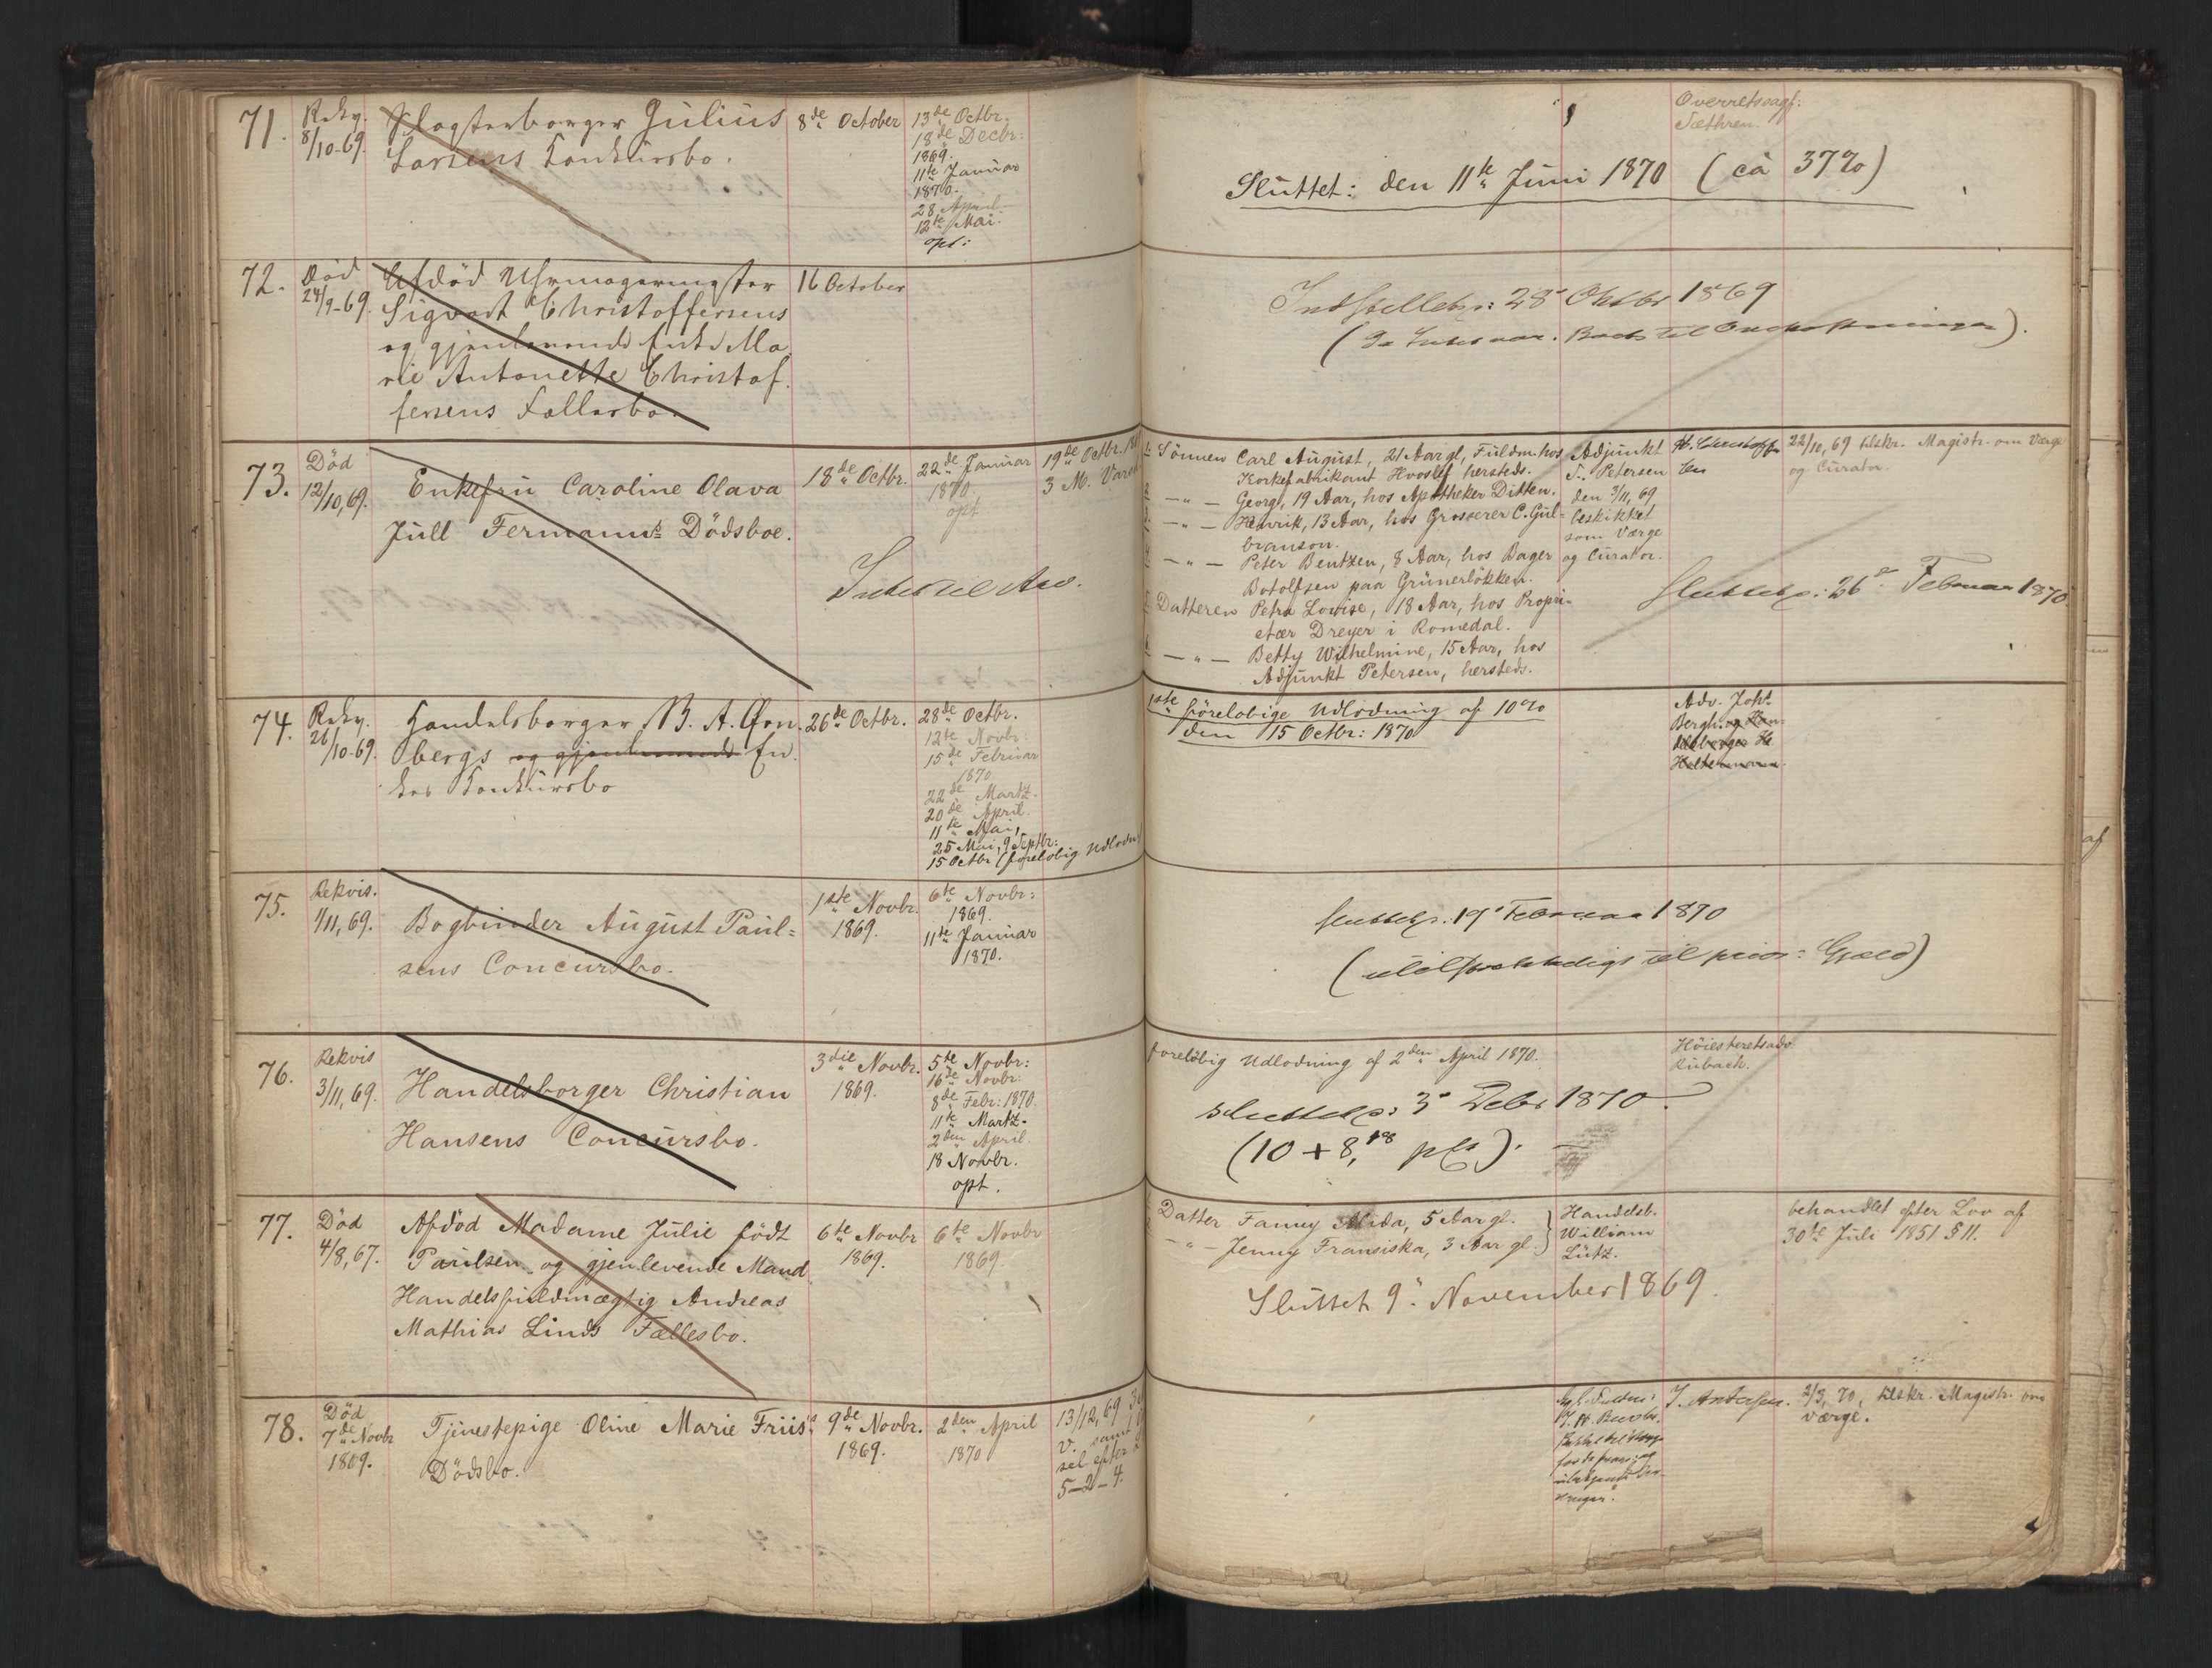 71. Rekv. 8/10-69. Slagterborger Julius
Larsens Konkursbo.
8de October
13de Octbr.
18de Decbr:
1869.
11te Januar
1870.
28 April
12te Mai.
opt:
Overretssagf:
Sæthren.
Sluttet: den 11te Juni 1870 (ca 37%)
72. Død 24/9-69. Afdød Uhrmagermester
Sigvart Christoffersens
og gjenlevende Enke Ma
rie Antonette Christof
fersens Fællesbo.
16 October
28 Oktbr 1869
73. Død 12/10, 69. Enkefru Caroline Olava
Jull Fermanns Dödsboe.
18de Octbr.
22de Januar
1870
opt
19de Octbr.
3 M.
Sönnen Carl August, 21 Aar gl, Fuldm. hos
Korkefabrikant Hvoslef hersteds.
— " — Georg, 19 Aar, hos Apotheker Ditten.
— " — Henrik, 13 Aar, hos Grosserer C. Gul=
branson.
— " — Peter Bentzen, 8 Aar, hos Bager
Botolfsen paa Grünerløkken.
Datteren Petra Lovise, 18 Aar, hos Propri=
etær Dreyer i Romedal.
— " — Betty Wilhelmine, 15 Aar, hos
Adjunkt Petersen, hersteds.
Adjunkt
F. Petersen
den 3/11, 69
beskikket
som Værge
og Curator.
22/10, 69 tilskr. Magistr. om Værge
og Curator.
26 Februar 1870
74. Rekv. 26/10-69. Handelsborger B. A. Örn
bergs og gjenlevende En
kes Konkursbo
26de Octbr.
28de Octbr.
12te Novbr:
15de Februar
1870
22de Martz.
20de April.
11te Mai,
25 Mai, 9 Septbr:
15 Octbr (foreløbig Udlodn
1ste föreløbige Udlodning af 10%
den 15 Octbr: 1870
Adv. Johs
Bergh og Han=
delsborger H
75. Rekvis. 1/11, 69. Bogbinder August Paul=
sens Concursbo.
1ste Novbr.
1869.
6te Novbr:
1869.
11te Januar
1870.
19 Februar 1870
til prior: Gjæld)
76. Rekvis 3/11, 69. Handelsborger Christian
Hansens Concursbo.
3die Novbr.
1869.
5te Novbr:
16de Novbr:
8de Febr: 1870.
11te Martz.
2den April.
18 Novbr.
opt.
foreløbig Udlodning af 2den April 1870.
Høiesteretsadv.
Rubach.
3 Debr 1870.
(10 + 8,18 pCt).
77. Död 4/8, 67. Afdød Madame Julie født
Paulsen og gjenlevende Mand
Handelsfuldmægtig Andreas
Mathias Linds Fællesbo.
6te Novbr
1869.
6te Novbr
1869.
Datter Fanny Alida, 5 Aar gl.
— " — Jenny Fransiska, 3 Aar gl.
Handelsb.
William
Lütz.
behandlet efter Lov af
30te Juli 1851 § 11.
Sluttet 9 November 1869.
78. Død
7de Novbr
1869.
Tjenestepige Oline Marie Friis'
Dödsbo.
9de Novbr.
1869.
2den April
1870
13/12, 69
V. samt
sel efter
5—2—4.
J. Andersen.
2/3, 70, tilskr. Magistr. om
værge.